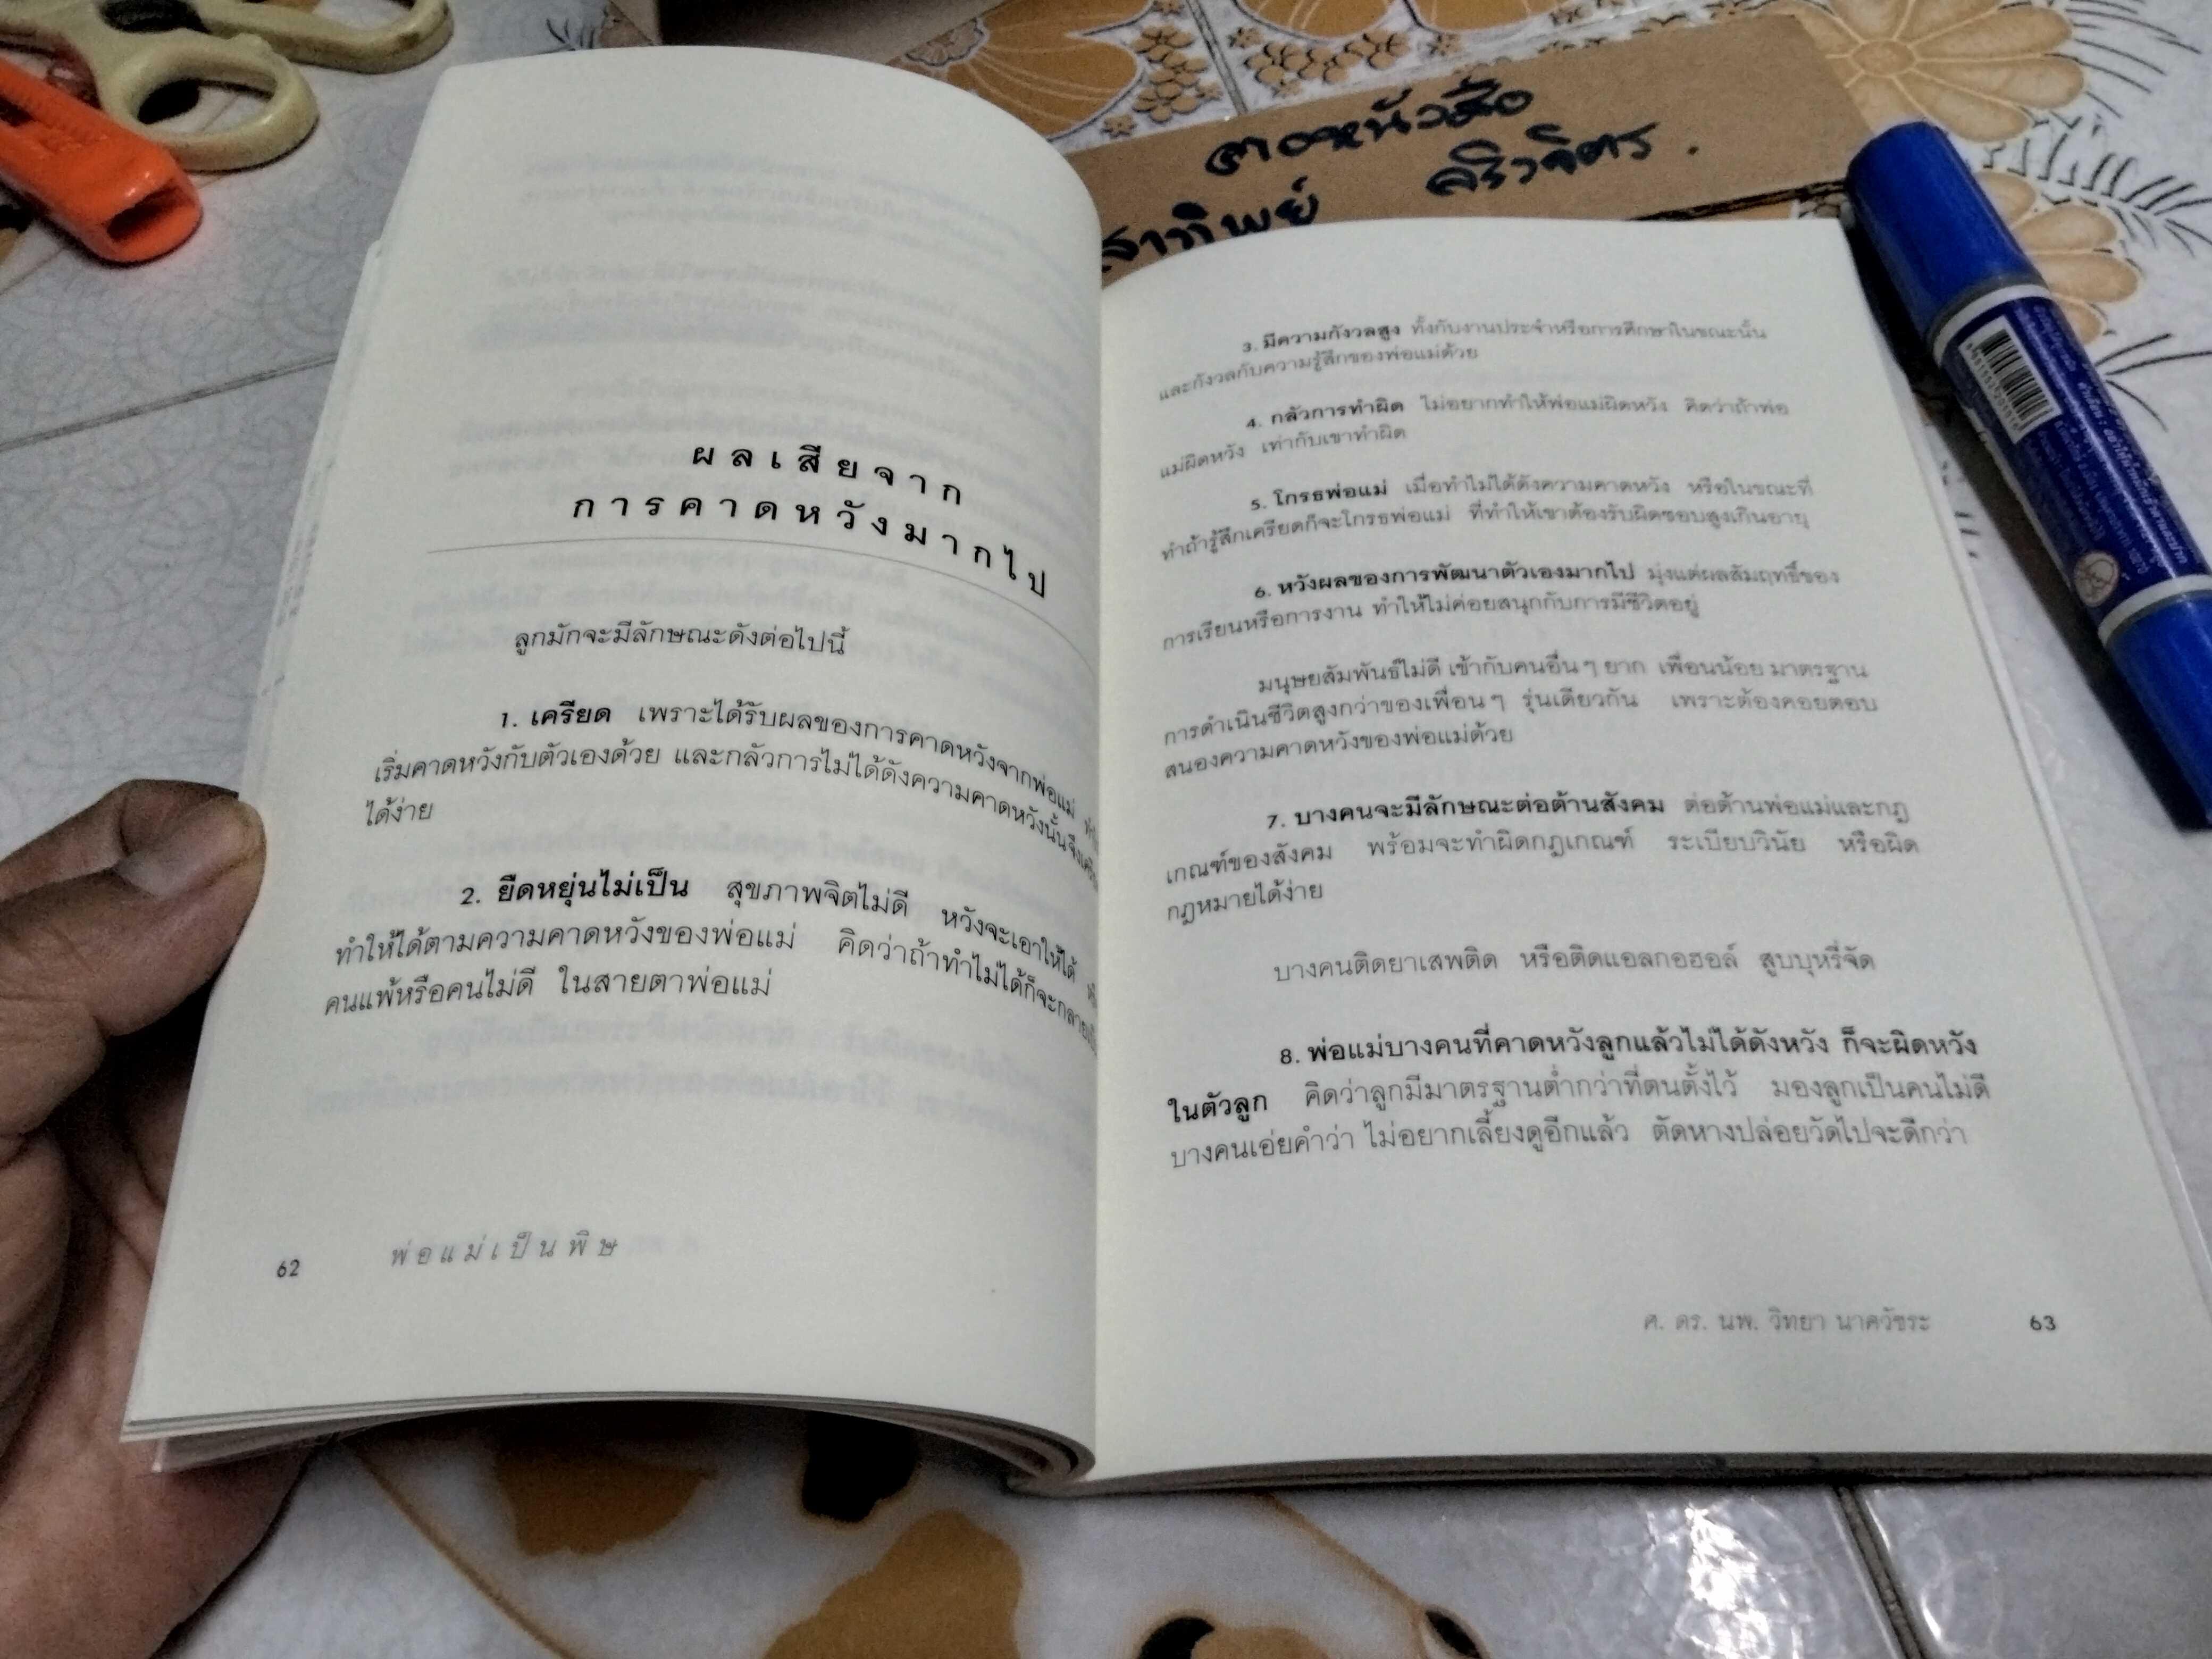 ผลเสียจาก
การคาดหวังมากไป
ลูกมักจะมีลักษณะดังต่อไปนี้
1. เครียด เพราะได้รับผลของการคาดหวังจากพ่อแม่
เริ่มคาดหวังกับตัวเองด้วย และกลัวการไม่ได้ดังความคาดหวังนั้น
ได้ง่าย
2. ยืดหยุ่นไม่เป็น สุขภาพจิตไม่ดี หวังจะเอาให้ได้
ทำให้ได้ตามความคาดหวังของพ่อแม่ คิดว่าถ้าทำไม่ได้ก็จะกลาย
คนแพ้หรือคนไม่ดี ในสายตาพ่อแม่
62 พ่อแม่เป็นพิษ
3. มีความกังวลสูง ทั้งกับงานประจำหรือการศึกษาในขณะนั้น
และกังวลกับความรู้สึกของพ่อแม่ด้วย
4. กลัวการทำผิด ไม่อยากทำให้พ่อแม่ผิดหวัง คิดว่าถ้าพ่อ
แม่ผิดหวัง เท่ากับเขาทำผิด
5. โกรธพ่อแม่ เมื่อทำไม่ได้ดังความคาดหวัง หรือในขณะที่
ทำถ้ารู้สึกเครียดก็จะโกรธพ่อแม่ ที่ทำให้เขาต้องรับผิดชอบสูงเกินอายุ
6. หวังผลของการพัฒนาตัวเองมากไป มุ่งแต่ผลสัมฤทธิ์ของ
การเรียนหรือการงาน ทำให้ไม่ค่อยสนุกกับการมีชีวิตอยู่
มนุษยสัมพันธ์ไม่ดี เข้ากับคนอื่นๆ ยาก เพื่อนน้อย มาตรฐาน
การดำเนินชีวิตสูงกว่าของเพื่อนๆ รุ่นเดียวกัน เพราะต้องคอยตอบ
สนองความคาดหวังของพ่อแม่ด้วย
7. บางคนจะมีลักษณะต่อต้านสังคม ต่อต้านพ่อแม่และกฎ
เกณฑ์ของสังคม พร้อมจะทำผิดกฎเกณฑ์ ระเบียบวินัย หรือผิด
กฎหมายได้ง่าย
บางคนติดยาเสพติด หรือติดแอลกอฮอล์ สูบบุหรี่จัด
8. พ่อแม่บางคนที่คาดหวังลูกแล้วไม่ได้ดังหวัง ก็จะผิดหวัง
ในตัวลูก คิดว่าลูกมีมาตรฐานต่ำกว่าที่ตนตั้งไว้ มองลูกเป็นคนไม่ดี
บางคนเอ่ยคำว่า ไม่อยากเลี้ยงดูอีกแล้ว ตัดหางปล่อยวัดไปจะดีกว่า
ศ. ดร. นพ. วิทยา นาควัชระ 63